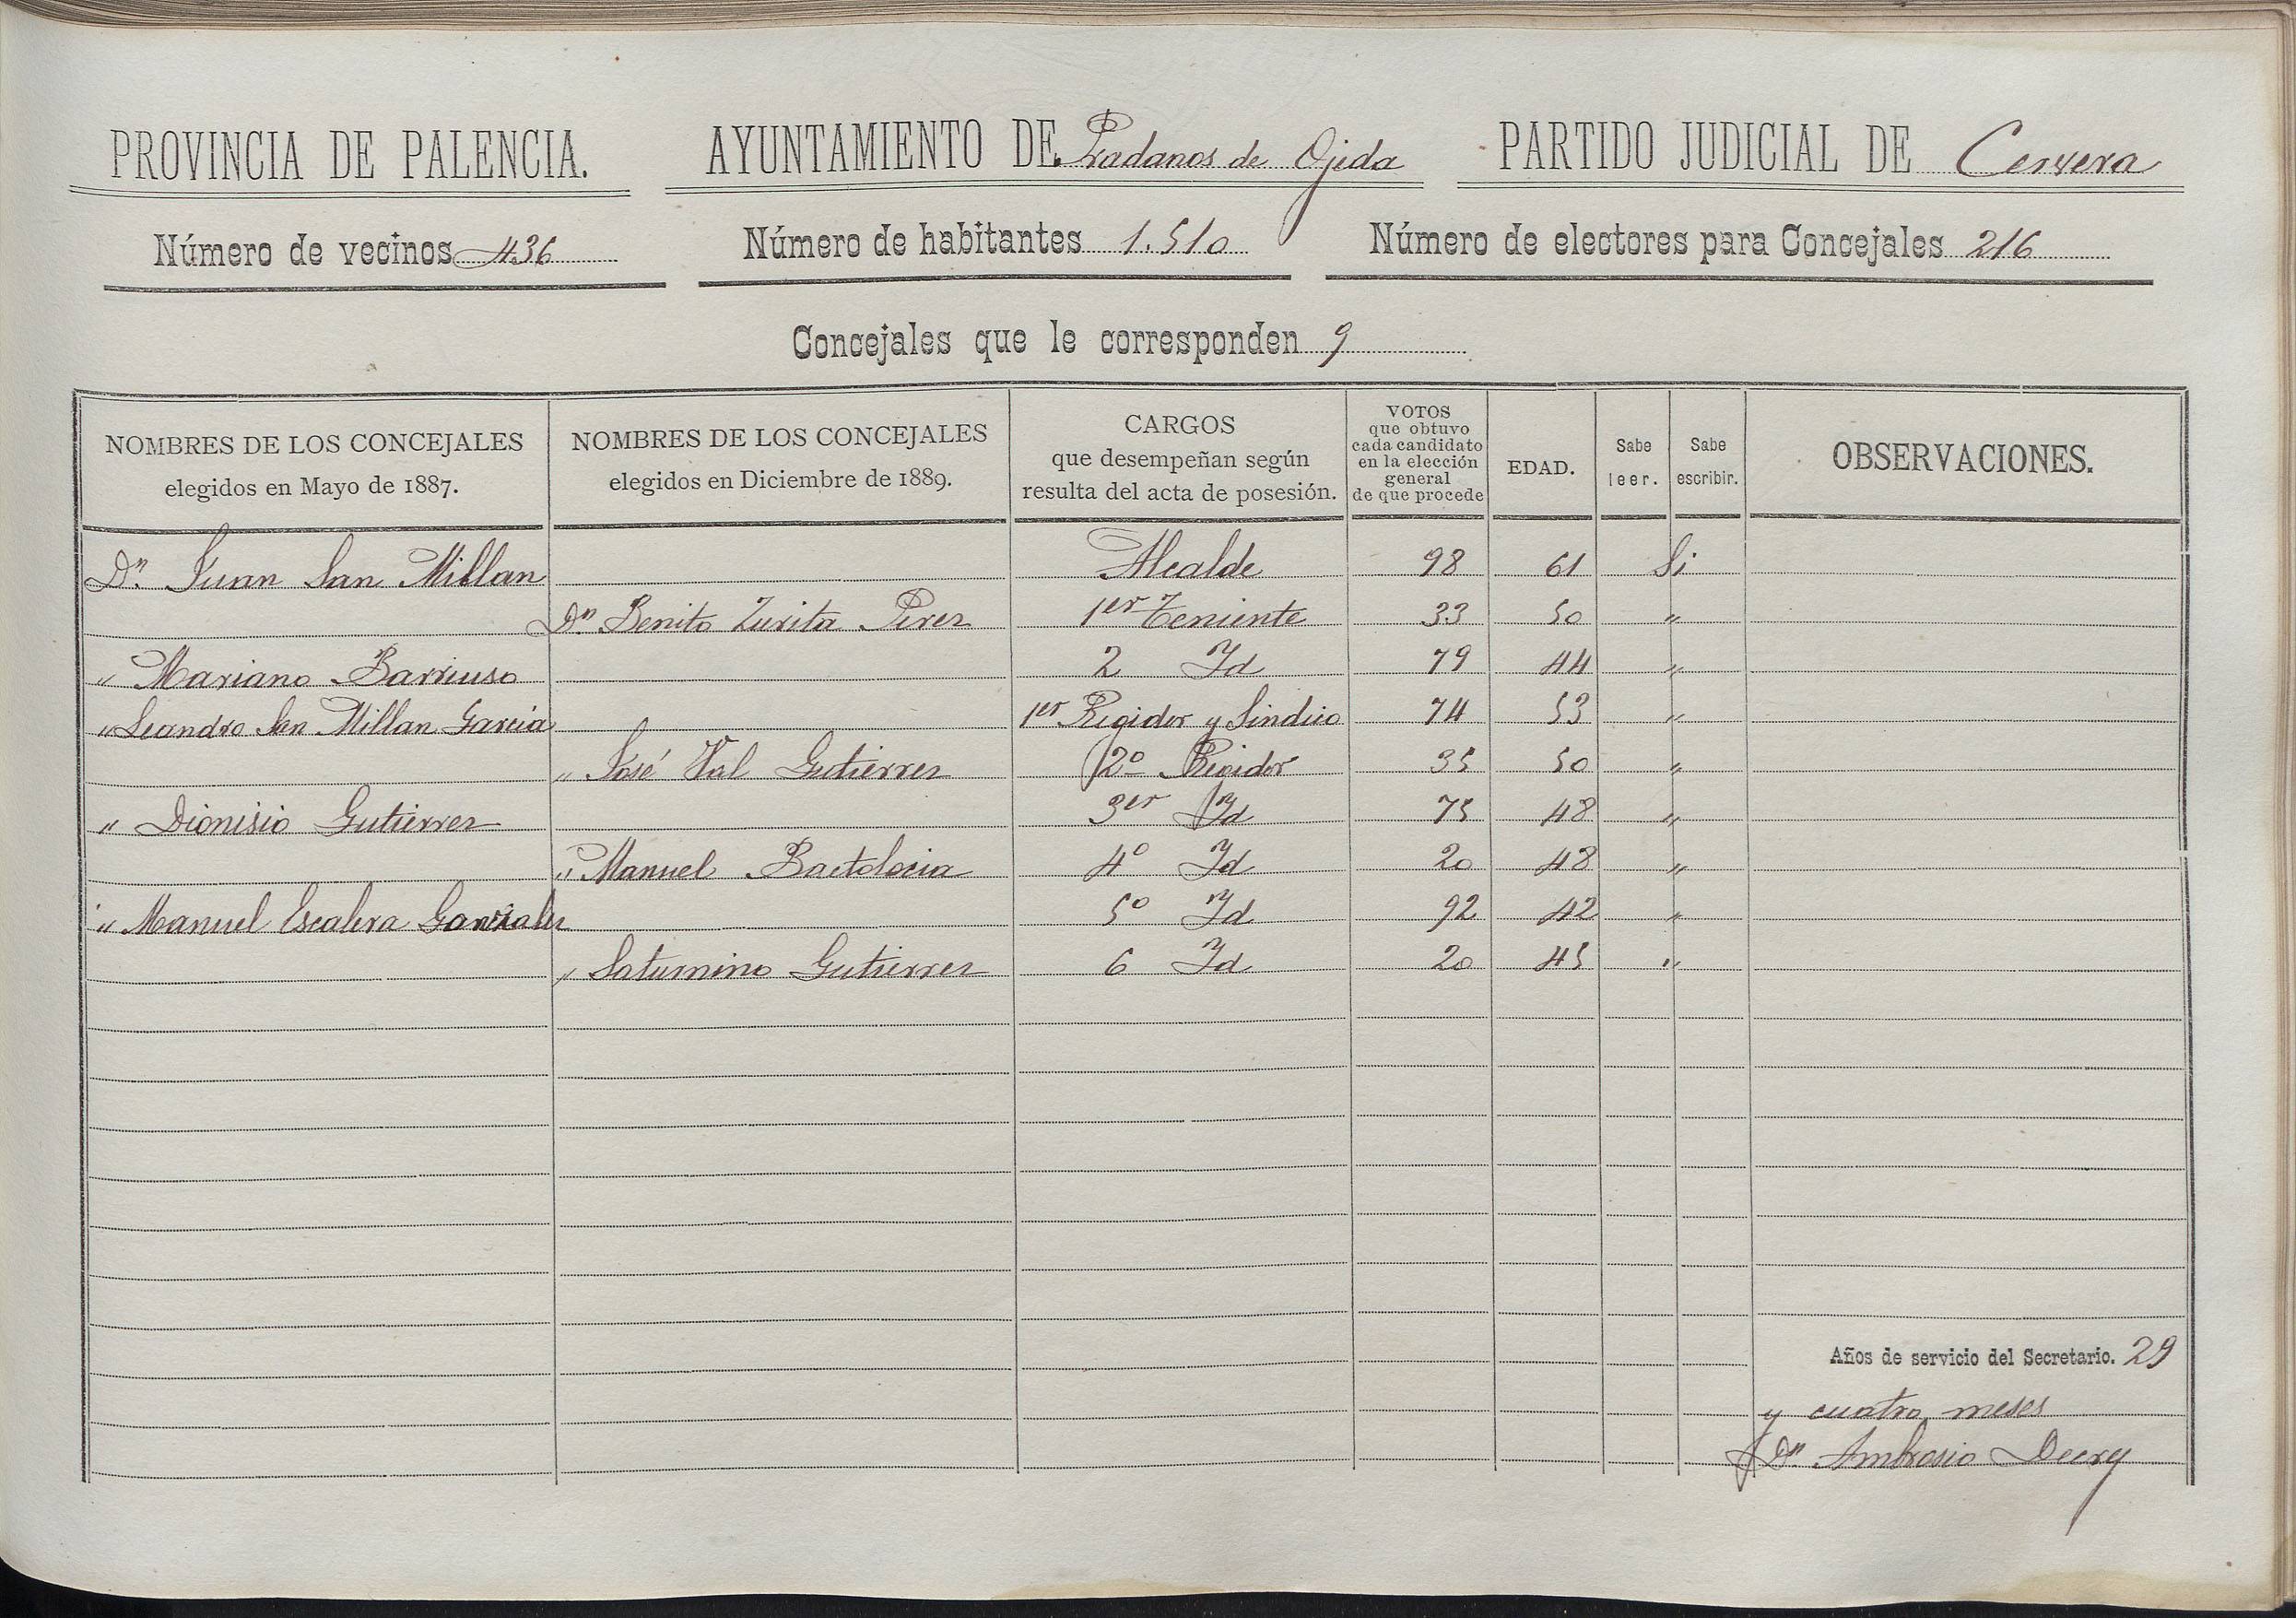 PROVINCIA DE PALENCIA. AYUNTAMIENTO DE Pradanos de Ojeda PARTIDO JUDICIAL DE Cervera
Número de vecinos 436 Número de habitantes 1.510 Número de electores para Concejales 216
Concejales que le corresponden 9
NOMBRES DE LOS CONCEJALES elegidos en Mayo de 1887. NOMBRES DE LOS CONCEJALES elegidos en Diciembre de 1889. CARGOS que desempeñan según resulta del acta de posesión. VOTOS que obtuvo cada candidato en la elección general de que procede EDAD. Sabe leer. Sabe escribir. OBSERVACIONES.
Dn. Juan San Millan Alcalde 98 61 Si
Dn. Benito Zurita Perez 1er Teniente 33 50 "
" Mariano Barriuso 2 Id 79 44 "
" Leandro San Millan Garcia 1er Regidor y Sindico 74 53 "
" José Val Gutierrez 2º Regidor 35 50 "
" Dionisio Gutierrez 3er Id 75 48 "
" Manuel 4º Id 20 48 "
" Manuel Escalera Gonzalez 5º Id 92 42 "
" Saturnino Gutierrez 6 Id 20 45 "
Años de servicio del Secretario. 29
y cuatro meses
Dn. Ambrosio